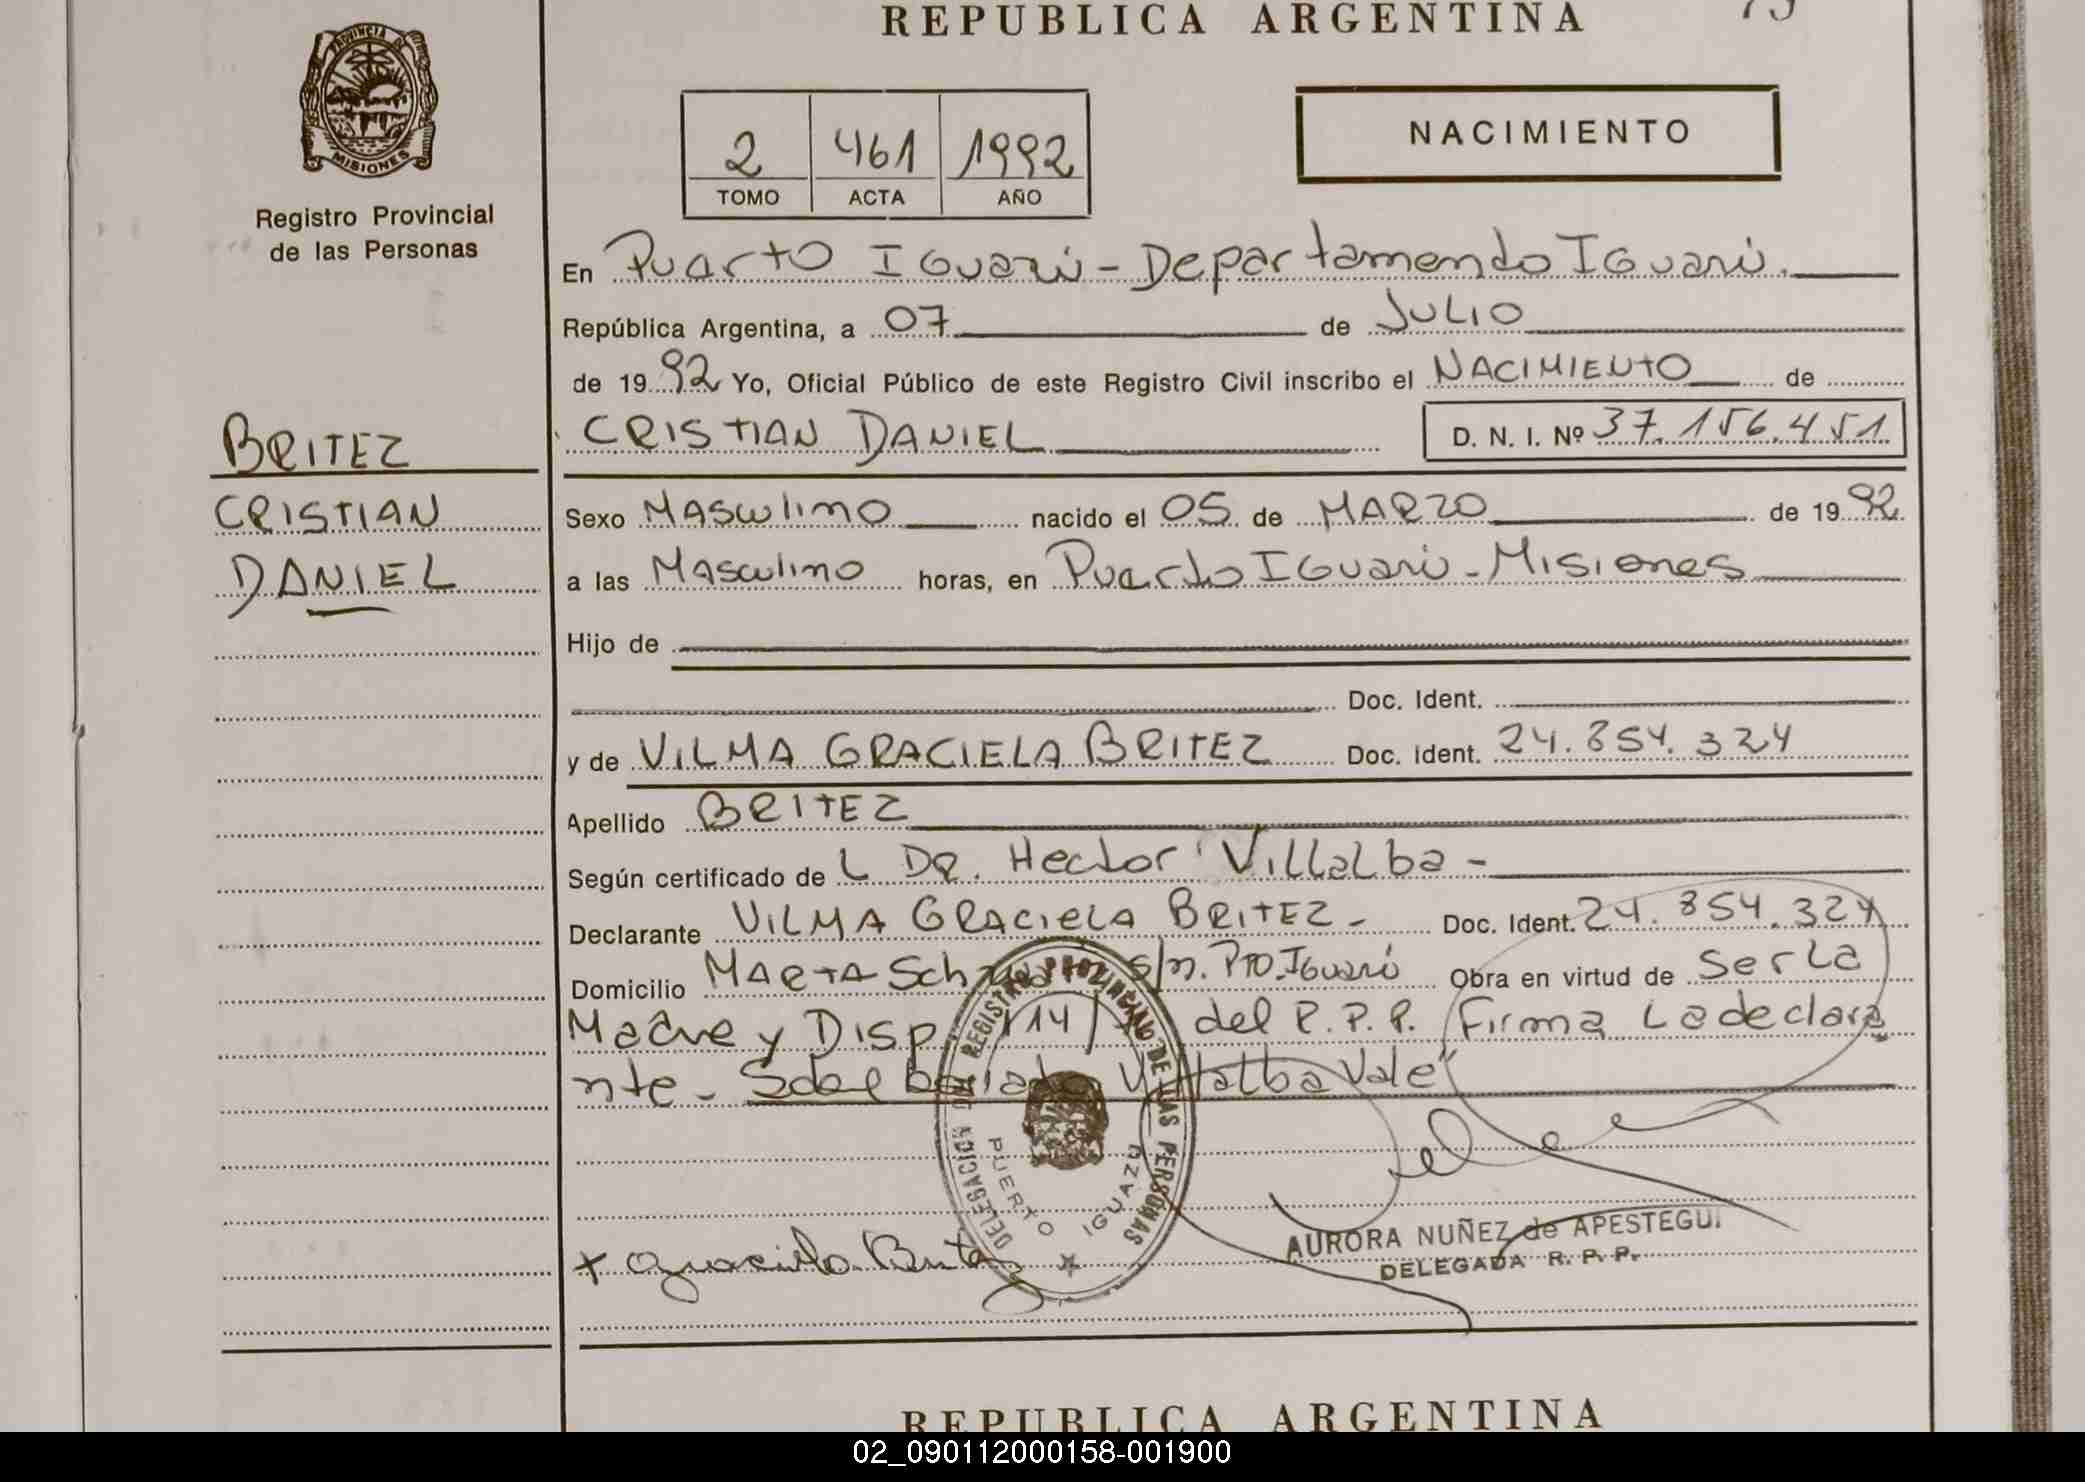 REPUBLICA ARGENTINA
PROVINCIA DE
MISIONES
Registro Provincial
de las Personas
2 461 1992
TOMO ACTA AÑO
NACIMIENTO
En Puarto Iguazú - Departamendo Iguazú.
República Argentina, a 07 de JULIO
de 1992 Yo, Oficial Público de este Registro Civil inscribo el NACIMIENTO de
CRISTIAN DANIEL D. N. I. Nº 37.156.451
BRITEZ
CRISTIAN
DANIEL
Sexo Masculino nacido el 05 de MARZO de 1992
a las Masculino horas, en Puerto Iguazú - Misiones
Hijo de
Doc. Ident.
y de VILMA GRACIELA BRITEZ Doc. Ident. 24.854.324
Apellido BRITEZ
Según certificado de L DR. Hector Villalba -
Declarante VILMA GRACIELA BRITEZ - Doc. Ident. 24.854.324
Domicilio MARTA s/n. Pto. Iguazú Obra en virtud de Ser La
Madre y Disp 114/ del R.P.P. Firma La declara
nte - Villalba Vale"
DELEGACION REGISTRO PROVINCIAL DE LAS PERSONAS
PUERTO IGUAZU
x Graciela Britez
AURORA NUÑEZ de APESTEGUI
DELEGADA R. P. P.
REPUBLICA ARGENTINA
02_090112000158-001900